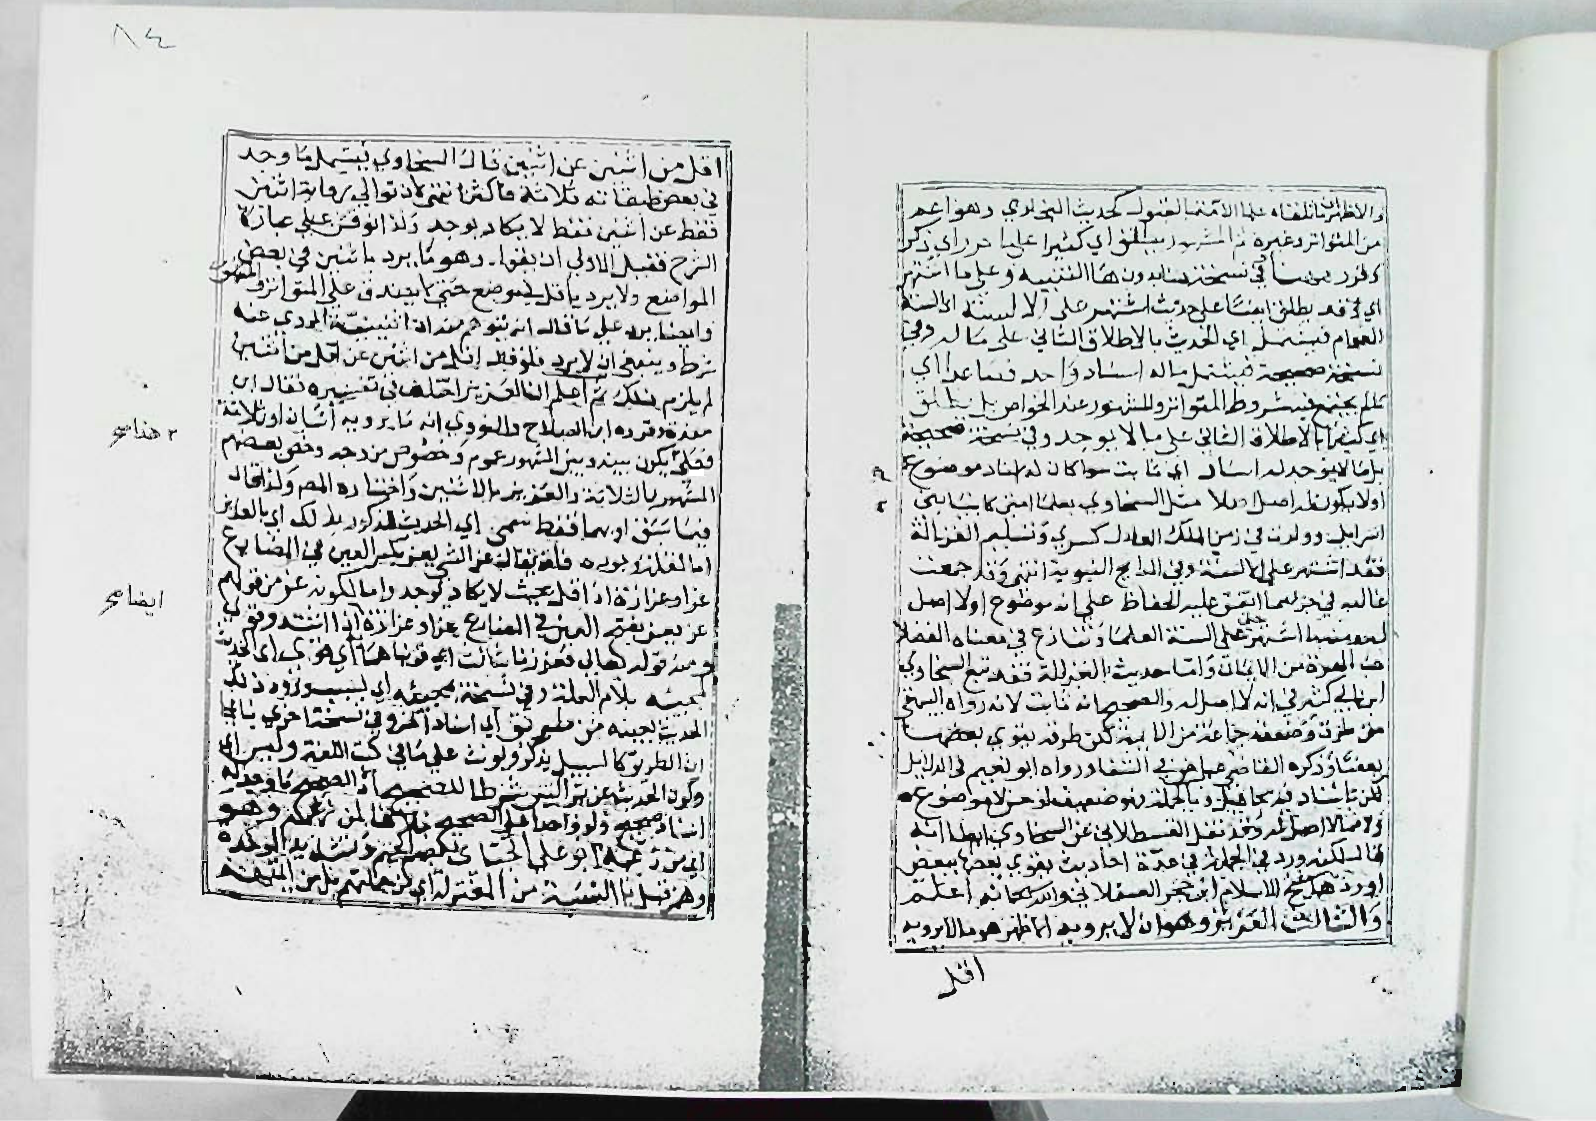 والاظهر ان ما تلقاه علماء الامة بالقبول كحديث البخاري وهو اعم
من المتواتر وغيره ثم المشهور يطلق اي كثيرا على ما حرر اي ذكر
وقرر هنا في نسخة بدون ها التنبيه وعلى ما اشتهر
اي وقد يطلق ايضا على حديث اشتهر على الالسنة اي السنة
العوام فيشمل اي الحديث بالاطلاق الثاني على ما له وفي
نسخة صحيحة فيشتمل ما له اسناد واحد فصاعدا اي
مما لم يجتمع فيه شروط المتواتر والمشهور عند الخواص بل يطلق
اي كثيرا بالاطلاق الثاني على ما لا يوجد وفي نسخة صحيحة
بل ما لا يوجد له اسناد اي ثابت سواء كان له اسناد موضوع
اولا يكون له اصل اصلا مثل السخاوي بعلماء امتي كانبياء بني
اسرائيل وولدت في زمن الملك العادل كسرى وتسليم الغزالة
فقد اشتهر على الالسنة وفي المدايح النبوية انتهى وقد جمعت
غالبه في جزء مما اتفق عليه الحفاظ على انه موضوع اولا اصل
له ومما اشتهر على السنة العلماء وتنازع في معناه الفضلاء
حب الهرة من الايمان واما حديث الغزالة فقد تبع السخاوي
ابن كثير في انه لا اصل له والصحيح انه ثابت لانه رواه البيهقي
من طرق وضعفه جماعة من الايمة لكن طرقه يقوي بعضها
بعضا وذكره القاضي عياض في الشفا ورواه ابو نعيم في الدلايل
باسناد فيه مجاهيل وبالجملة فهو ضعيف لا موضوع
ولا مما لا اصل له وقد نقل القسطلاني عن السخاوي ايضا انه
قال لكنه ورد في الجملة في عدة احاديث يقوي بعضها ببعض
اوردها شيخ الاسلام ابن حجر العسقلاني والله سبحانه اعلم
والثالث العزيز وهو ان لا يرويه الاظهر هو ما لا يرويه
اقل
٨٤
اقل من اثنين عن اثنين قال السخاوي يشمل ما وجد
في بعض طبقاته ثلاثة فاكثر انتهى لان توالي رواية اثنين
فقط عن اثنين فقط لا يكاد يوجد ولذا توقش على عبارة
الشرح فقيل الاولى ان يقول وهو ما يرد باثنين في بعض
المواضع ولا يرد باقل في موضع حتى لا يصدق على المتواتر والمشهور
وايضا يرد على ما قاله انه يتوهم منه ان اثنينية المروي عنه
شرط وينبغي ان لا يرد فلو قال اقل من اثنين عن اقل من اثنين
لم يلزم ذلك ثم اعلم ان العزيز اختلف في تفسيره فقال ابن
منده وقرره ابن الصلاح والنووي انه ما يرويه اثنان او ثلاثة
فعلى يكون بينه وبين المشهور عموم وخصوص من وجه وخص بعضهم
٢ هذا صح
المشهور بالثلاثة والعزيز بالاثنين واختاره المص ولذا قال
فيما سبق او بهما فقط سمي اي الحديث المذكور بذلك اي بالعزيز
اما لقلة وجوده فانه يقال عز الشي يعز بكسر العين في المضارع
عزا وعزازة اذا قل بحيث لا يكاد يوجد واما لكونه عز من قولهم
ايضا صح
عز يعز بفتح العين في المضارع عزا وعزازة اذا اشتد وقوي
ومنه قوله تعالى فعززنا بثالث اي قوينا هما اي قوي اي الحديث
لمجيئه بلام العلة وفي نسخة بمجيئه اي بسبب ورود ذلك
الحديث بعينه من طريق اي اسناد اخر وفي نسخة اخرى بناء
ان الطريق كالسبيل يذكر ويونث على ما في كتب اللغة وليس اي
وكون الحديث عزيزا ليس شرطا للصحيح اذ الصحيح ما وجد له
اسناد صحيح ولو واحدا على الصحيح خلافا لمن زعمه وهو
اي من زعمه ابو علي الجبائي بضم الجيم وتشديد الموحدة
وهمز قبل ياء النسبة من المعتزلة اي من جملتهم